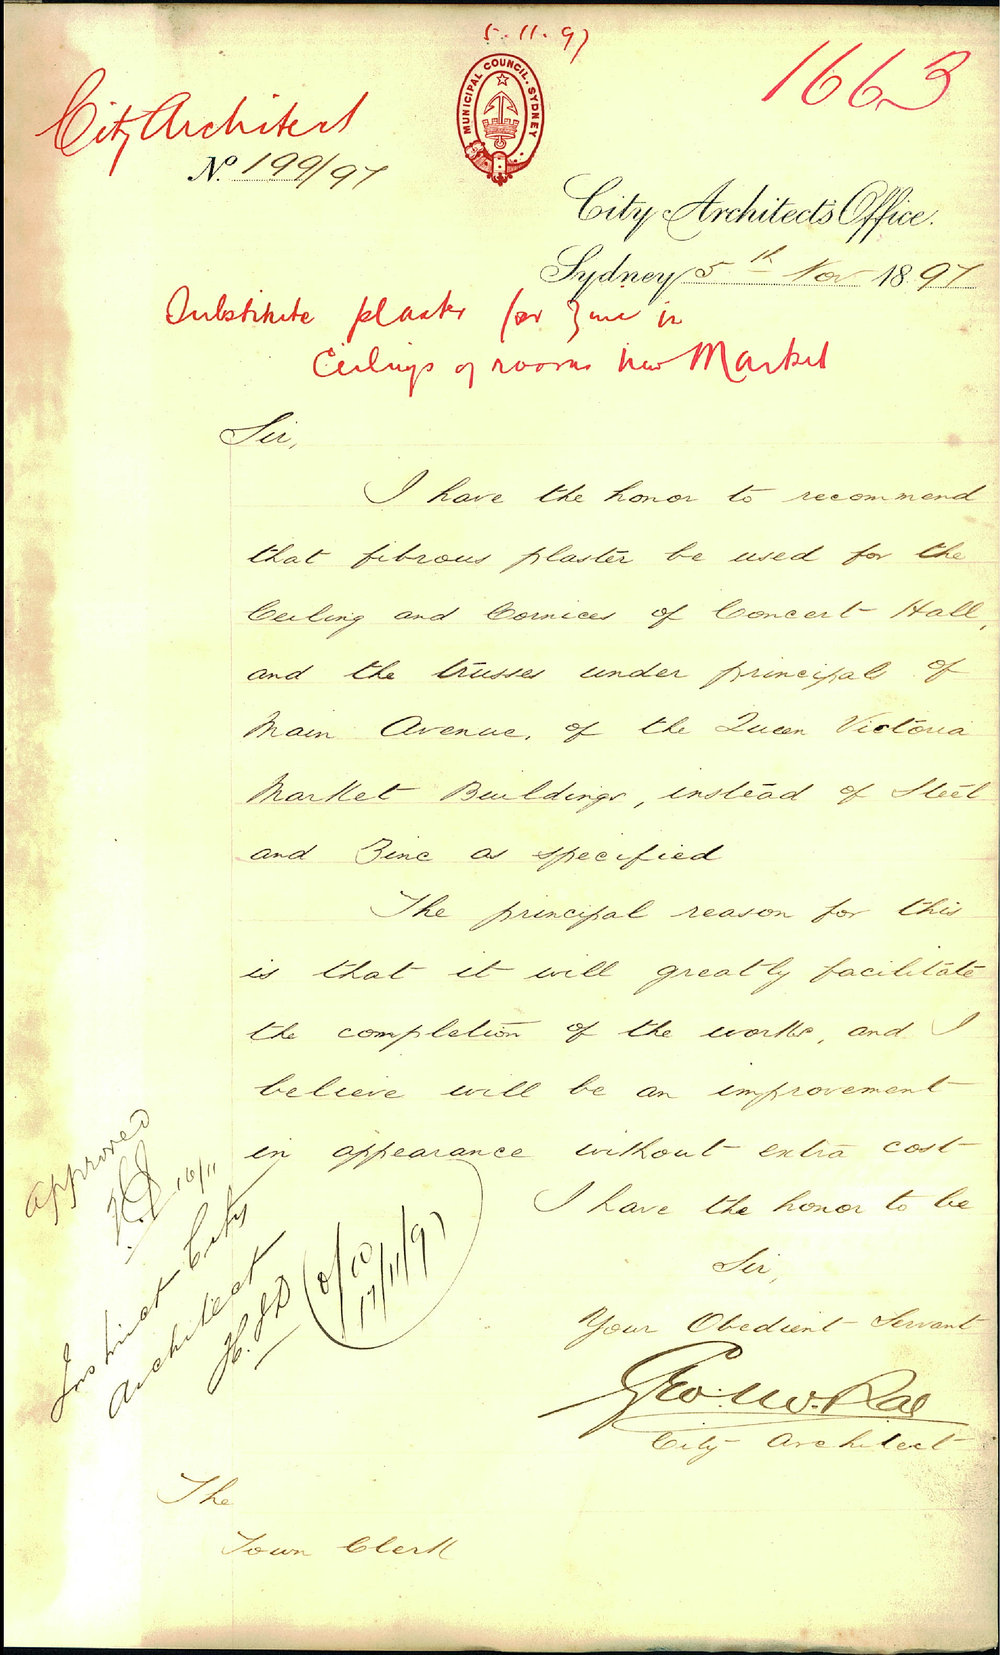 5.11.97
1663
City Architect
MUNICIPAL COUNCIL. SYDNEY
No. 199/97
City Architect's Office.
Sydney 5th Nov 1897
Substitute plaster for zinc in
Ceilings of rooms new Market
Sir,
I have the honor to recommend
that fibrous plaster be used for the
Ceiling and Cornices of Concert Hall,
and the trusses under principals of
Main Avenue, of the Queen Victoria
Market Buildings, instead of Steel
and Zinc as specified
The principal reason for this
is that it will greatly facilitate
the completion of the works, and I
believe will be an improvement
in appearance without extra cost
I have the honor to be
Sir,
Your Obedient Servant
Geo. McRae
City Architect
Approved
16/11
Instruct City
Architect
17/11/97
The
Town Clerk